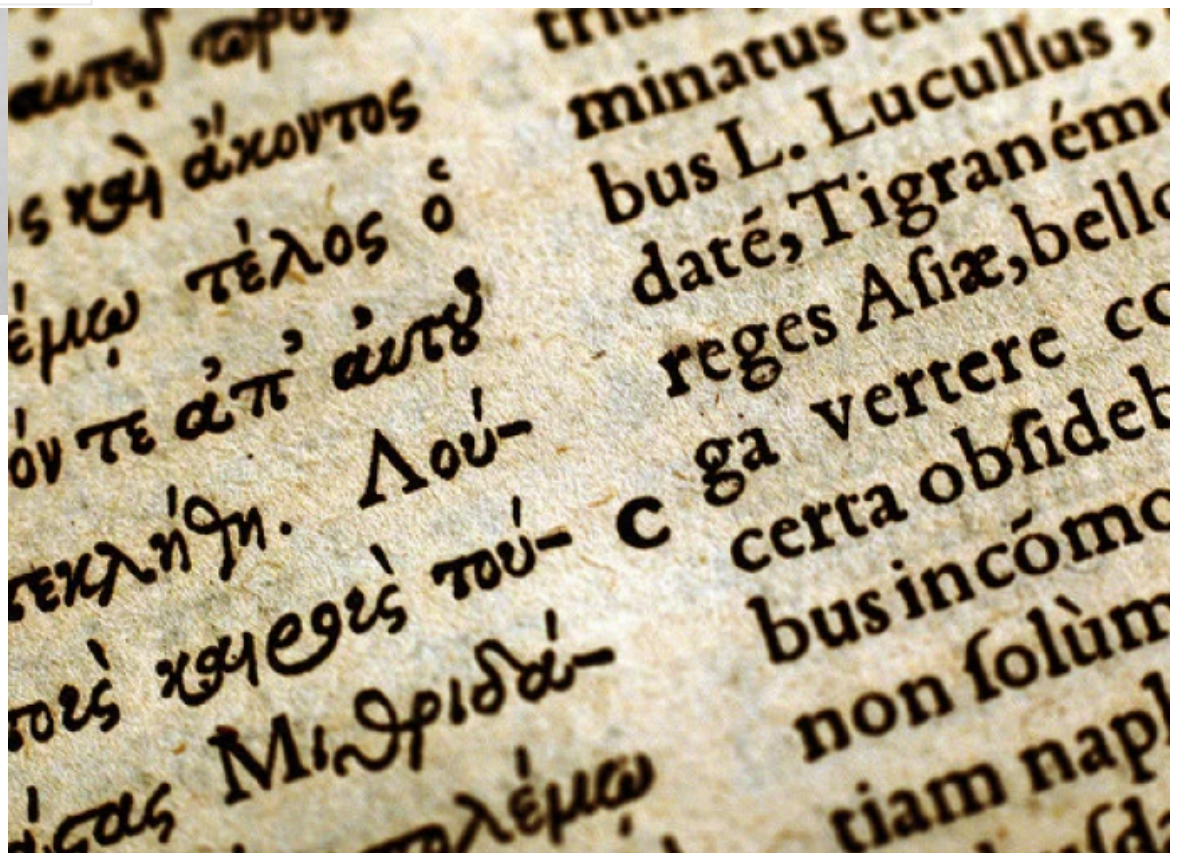 αὐτῷ πρὸς
ς καὶ ἄκοντος
έμῳ τέλος ὁ
όν τε ἀπ' αὐτοῦ
τεκλήθη. Λού-
τοὺς καιροὺς τού-
Μιθριδά-
λέμῳ
minatus
bus L. Lucullus,
daté, Tigranémq
reges Aſiæ, bello
C ga vertere co
certa obſideb
bus incómo
non ſolùm
tiam naph